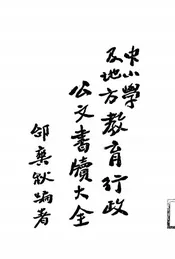 中小學
及地方
教育行政
公文書牘大全
邰爽秋編著